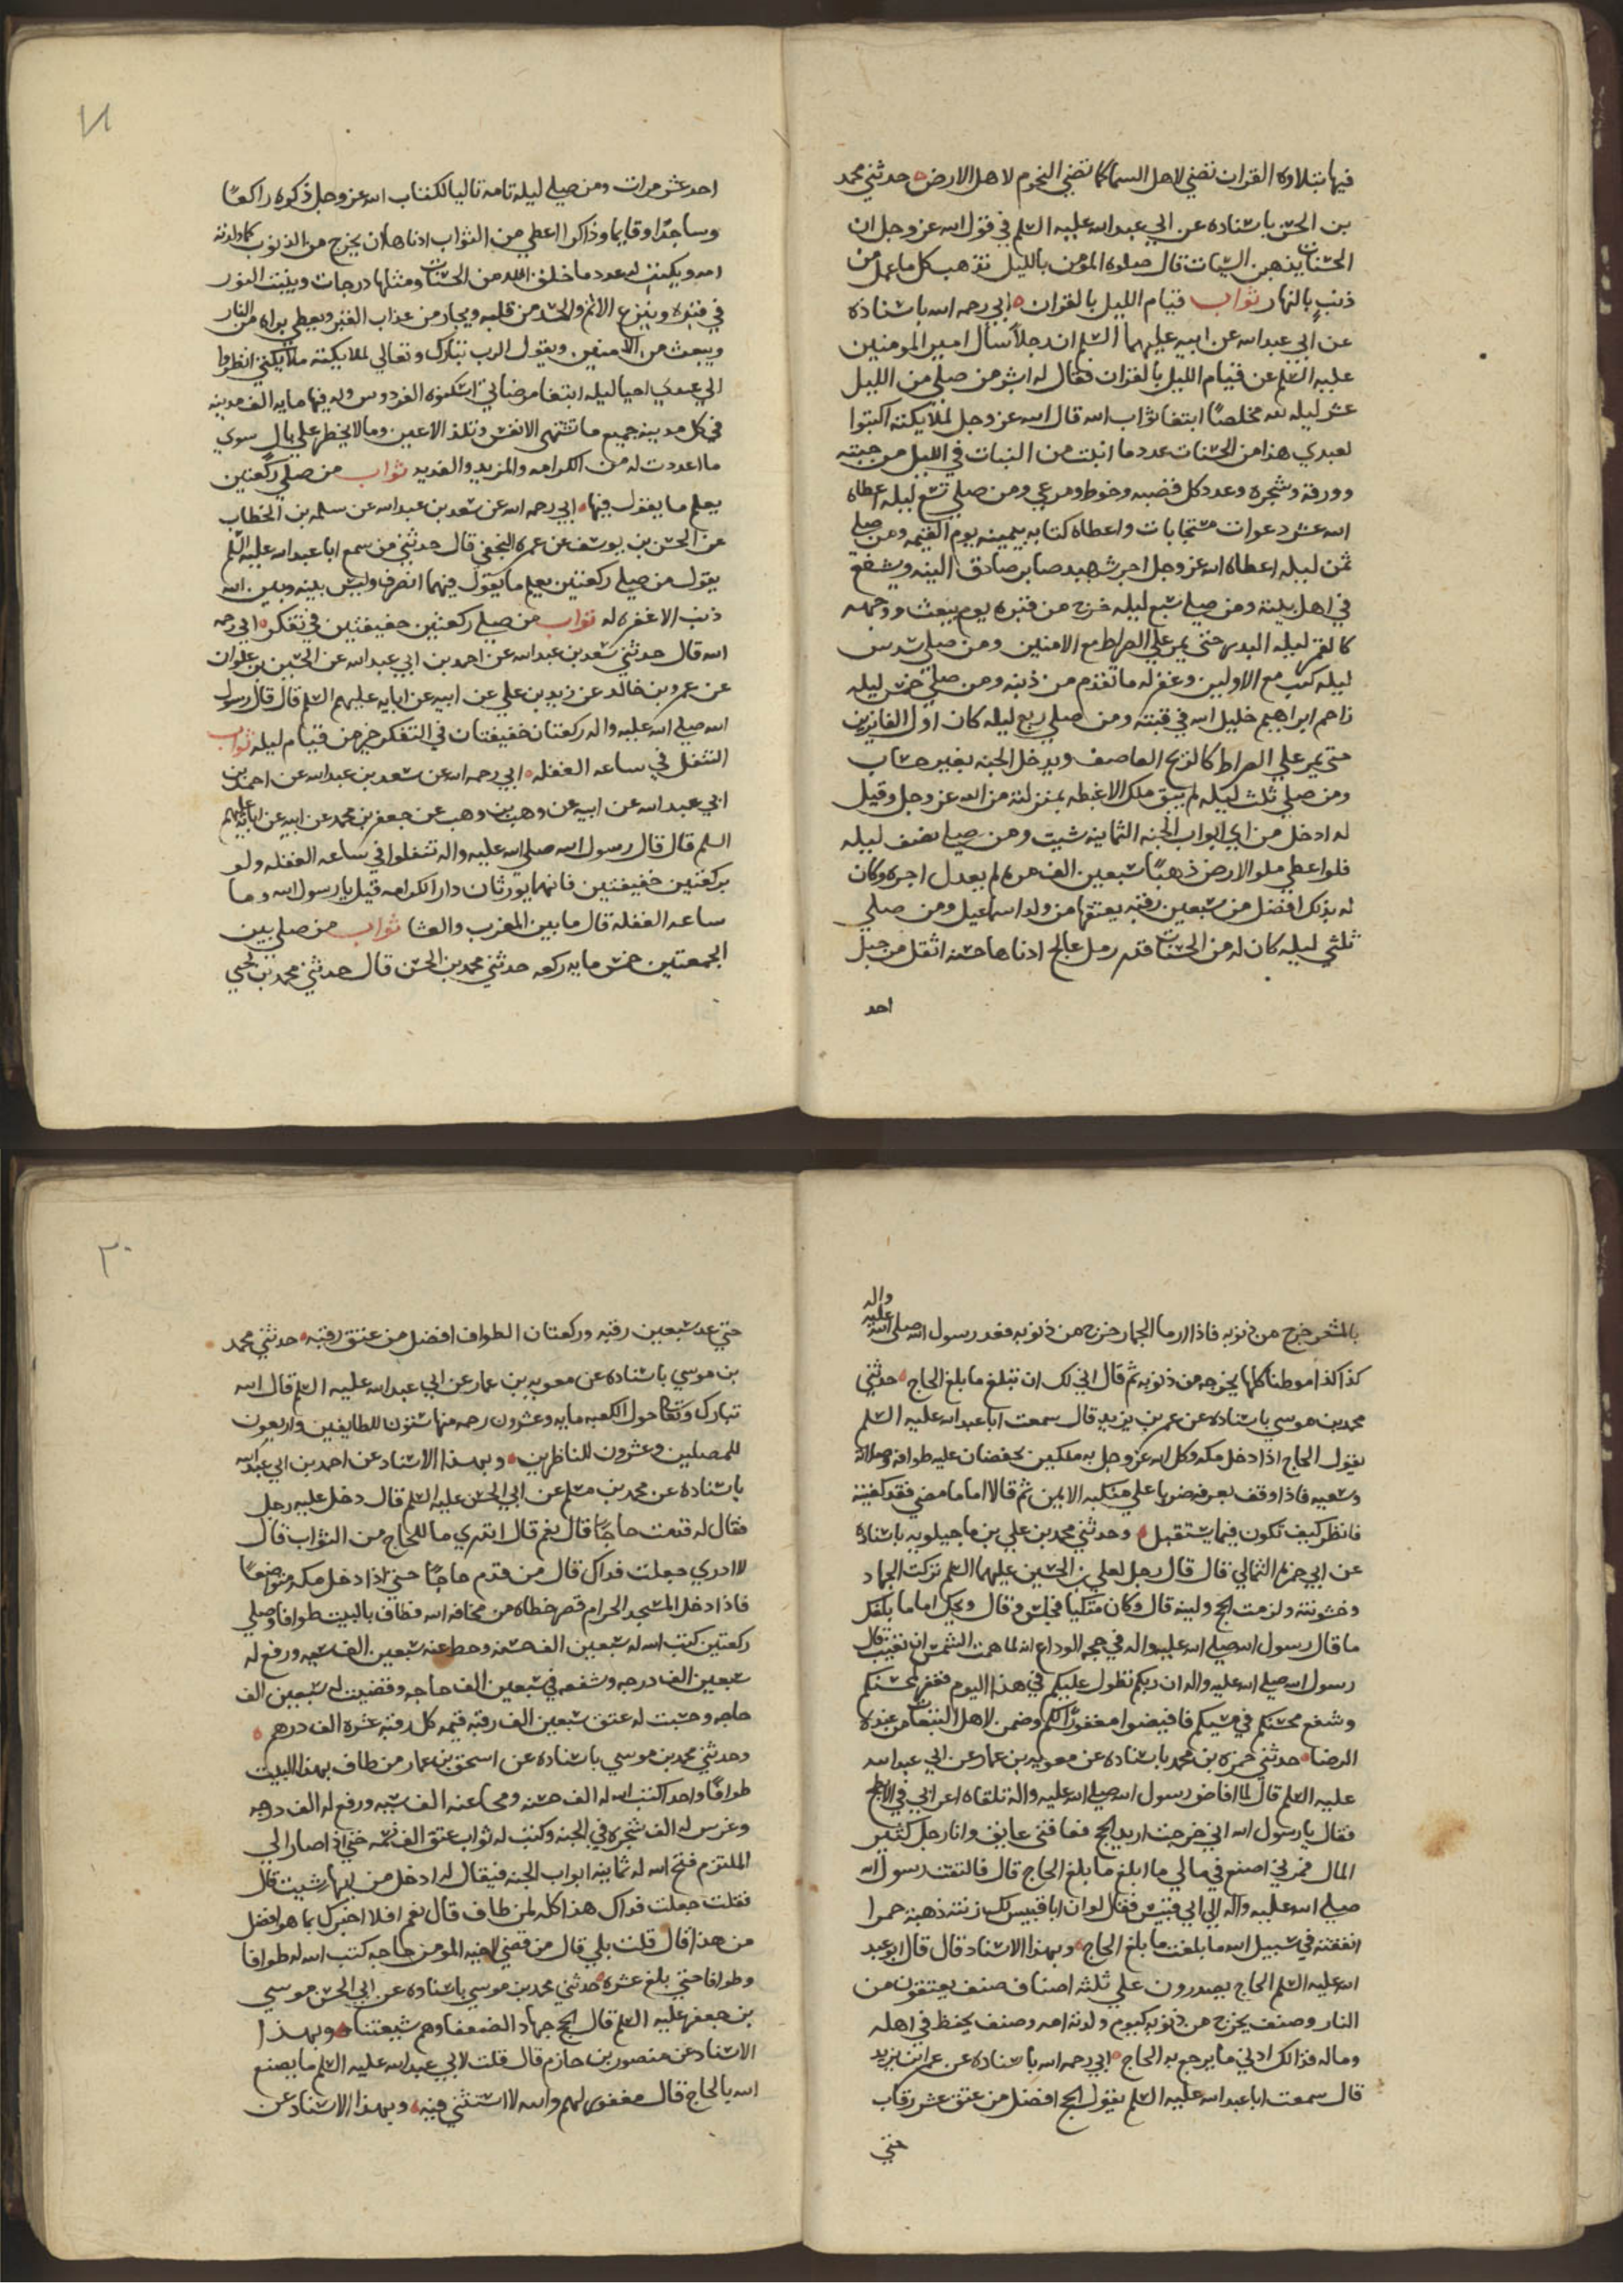 فيها بتلاوه القران تضي لاهل السما كما تضي النجوم لاهل الارض حدثني محمد
بن الحسن باسناده عن ابي عبد الله عليه السلم في قول الله عز وجل ان
الحسنات يذهبن السيات قال صلوه المؤمن بالليل تذهب كل ما عمل من
ذنبٍ بالنهار ثواب قيام الليل بالقران ابي رحمه الله باسناده
عن ابي عبد الله عن ابيه عليهما السلم ان رجلاً سال امير المومنين
عليه السلم عن قيام الليل بالقران فقال له ابشر من صلي من الليل
عشر ليله لله مخلصًا ابتغا ثواب الله قال الله عز وجل لملايكته اكتبوا
لعبدي هذا من الحسنات عدد ما انبت من النبات في الليل من حبته
وورقة وشجره وعدد كل قصبه وخوط ومرعي ومن صلي تسع ليله اعطاه
الله عشر دعوات مستجابات واعطاه كتابه بيمينه يوم القيمه ومن صلي
ثمن ليله اعطاه الله عز وجل اجر شهيد صابر صادق النيه ويشفع
في اهل بيته ومن صلي سبع ليله خرج من قبره يوم يبعث ووجهه
كالقمر ليله البدر حتي يمر علي الصراط مع الامنين ومن صلي سدس
ليله كتب مع الاولين وغفر له ما تقدم من ذنبه ومن صلي خمس ليله
زاحم ابراهيم خليل الله في قبته ومن صلي ربع ليله كان اول الفايزين
حتي يمر علي الصراط كالريح العاصف ويدخل الجنه بغير حساب
ومن صلي ثلث ليله لم يبق ملك الا غبطه بمنزلته من الله عز وجل وقيل
له ادخل من اي ابواب الجنه الثمانيه شيت ومن صلي نصف ليله
فلو اعطي ملو الارض ذهبًا سبعين الف مره لم يعدل اجره وكان
له بذلك افضل من سبعين رقبه يعتقها من ولد اسماعيل ومن صلي
ثلثي ليله كان له من الحسنات قدر رمل عالج ادناها حسنه اثقل من جبل
احد
احد عشر مرات ومن صلي ليله تامه تاليا لكتاب الله عز وجل ذكره راكعًا
وساجدًا وقايما وذاكرا اعطي من الثواب ادناها ان يخرج من الذنوب كما ولدته
امه ويكتب له عدد ما خلق الله من الحسنات ومثلها درجات ويثبت النور
في قبره وينزع الاثم والحسد من قلبه ويجار من عذاب القبر ويعطي براه من النار
ويبعث من الامنين ويقول الرب تبارك وتعالي لملايكته ملايكتي انظروا
الي عبدي احيا ليله ابتغا مرضاتي اسكنوه الفردوس وله فيها مايه الف مدينه
في كل مدينه جميع ما تشتهي الانفس وتلذ الاعين وما لا يخطر علي بال سوي
ما اعددت له من الكرامه والمزيد والقديد ثواب من صلي ركعتين
يعلم ما يقول فيها ابي رحمه الله عن سعد بن عبد الله عن سلمه بن الخطاب
عن الحسن بن يوسف عن عمره النجفي قال حدثني من سمع ابا عبد الله عليه السلم
يقول من صلي ركعتين يعلم ما يقول فيهما انصرف وليس بينه وبين الله
ذنب الا غفره له ثواب من صلي ركعتين خفيفتين في تفكر ابي رحمه
الله قال حدثني سعد بن عبد الله عن احمد بن ابي عبد الله عن الحسين بن علوان
عن عمرو بن خالد عن زيد بن علي عن ابيه عن ابايه عليهم السلم قال قال رسول
الله صلي الله عليه واله ركعتان خفيفتان في التفكر خير من قيام ليله ثواب
التنفل في ساعه الغفله ابي رحمه الله عن سعد بن عبد الله عن احمد بن
ابي عبد الله عن ابيه عن وهب بن وهب عن جعفر بن محمد عن ابيه عن ابايه عليهم
السلم قال قال رسول الله صلي الله عليه واله تنفلوا في ساعه الغفله ولو
بركعتين خفيفتين فانهما يورثان دار الكرامه قيل يا رسول الله وما
ساعه الغفله قال ما بين المغرب والعشا ثواب من صلي بين
الجمعتين خمس مايه ركعه حدثني محمد بن الحسن قال حدثني محمد بن يحيي
بالمشعر خرج من ذنوبه فاذا رما الجمار خرج من ذنوبه فعد رسول الله صلي الله عليه واله
كذا كذا موطنا كلها يخرجه من ذنوبه ثم قال اني لك ان تبلغ ما بلغ الحاج حدثني
محمد بن موسي باسناده عن عمر بن يزيد قال سمعت ابا عبد الله عليه السلم
يقول الحاج اذا دخل مكه وكل الله عز وجل به ملكين يحفضان عليه طوافه وصلاته
وسعيه فاذا وقف بعرفه ضربا علي منكبه الايمن ثم قالا اما ما مضي فقد كفيته
فانظر كيف تكون فيما يستقبل وحدثني محمد بن علي بن ماجيلويه باسناده
عن ابي حمزه الثمالي قال قال رجل لعلي بن الحسين عليهما السلم تركت الجهاد
وخشونته ولزمت الحج ولينه قال وكان متكيا فجلس وقال ويحك اما ما بلغك
ما قال رسول الله صلي الله عليه واله في حجه الوداع انه لما همت الشمس ان تغيب قال
رسول الله صلي الله عليه واله ان ربكم تطول عليكم في هذا اليوم فغفر لمحسنكم
وشفع محسنكم في مسيكم فافيضوا مغفورًا لكم وضمن لاهل التبعات من عنده
الرضا حدثني حمزه بن محمد باسناده عن معويه بن عمار عن ابي عبد الله
عليه السلم قال لما افاض رسول الله صلي الله عليه واله تلقاه اعرابي في الابطح
فقال يا رسول الله اني خرجت اريد الحج فعاقني عايق وانا رجل كثير
المال فمرني اصنع في مالي ما ابلغ ما بلغ الحاج قال فالتفت رسول الله
صلي الله عليه واله الي ابي قبيس فقال لو ان ابا قبيس لك زنته ذهبه حمرا
انفقته في سبيل الله ما بلغت ما بلغ الحاج وبهذا الاسناد قال قال ابو عبد
الله عليه السلم الحاج يصدرون علي ثلثه اصناف صنف يعتقون من
النار وصنف يخرج من ذنوبه كيوم ولدته امه وصنف يحفظ في اهله
وماله فذالك ادني ما يرجع به الحاج ابي رحمه الله باسناده عن عمر بن يزيد
قال سمعت ابا عبد الله عليه السلم يقول الحج افضل من عتق عشر رقاب
حتي
٢٠
حتي عد سبعين رقبه وركعتان الطواف افضل من عتق رقبه حدثني محمد
بن موسي باسناده عن معويه بن عمار عن ابي عبد الله عليه السلم قال الله
تبارك وتعالي حول الكعبه مايه وعشرون رحمه منها ستون للطايفين واربعون
للمصلين وعشرون للناظرين وبهذا الاسناد عن احمد بن ابي عبد الله
باسناده عن محمد بن مسلم عن ابي الحسن عليه السلم قال دخل عليه رجل
فقال له قدمت حاجًا قال نعم قال اتدري ما للحاج من الثواب قال
لا ادري جعلت فداك قال من قدم حاجًا حتي اذا دخل مكه متواضعًا
فاذا دخل المسجد الحرام قصر خطاه من مخافه الله فطاف بالبيت طوافا وصلي
ركعتين كتب الله له سبعين الف حسنه وحط عنه سبعين الف سيه ورفع له
سبعين الف درجه وشفعه في سبعين الف حاجه وقضيت له سبعين الف
حاجه وحسبت له عتق سبعين الف رقبه قيمه كل رقبه عشره الف درهم
وحدثني محمد بن موسي باسناده عن اسحق بن عمار من طاف بهذا البيت
طوافًا واحدا كتب الله له الف حسنه ومحا عنه الف سيه ورفع له الف درجه
وغرس له الف شجره في الجنه وكتب له ثواب عتق الف نسمه حتي اذا صار الي
الملتزم فتح الله له ثمانيه ابواب الجنه فيقال له ادخل من ايها شيت قال
فقلت جعلت فداك هذا كله لمن طاف قال نعم افلا اخبرك بما هو افضل
من هذا قال قلت بلي قال من قضي لاخيه المومن حاجه كتب الله له طوافا
وطوافا حتي بلغ عشره حدثني محمد بن موسي باسناده عن ابي الحسن موسي
بن جعفر عليه السلم قال الحج جهاد الضعفا وهم شيعتنا وبهذا
الاسناد عن منصور بن حازم قال قلت لابي عبد الله عليه السلم ما يصنع
الله بالحاج قال مغفور لهم والله لا استثني فيه وبهذا الاسناد عن